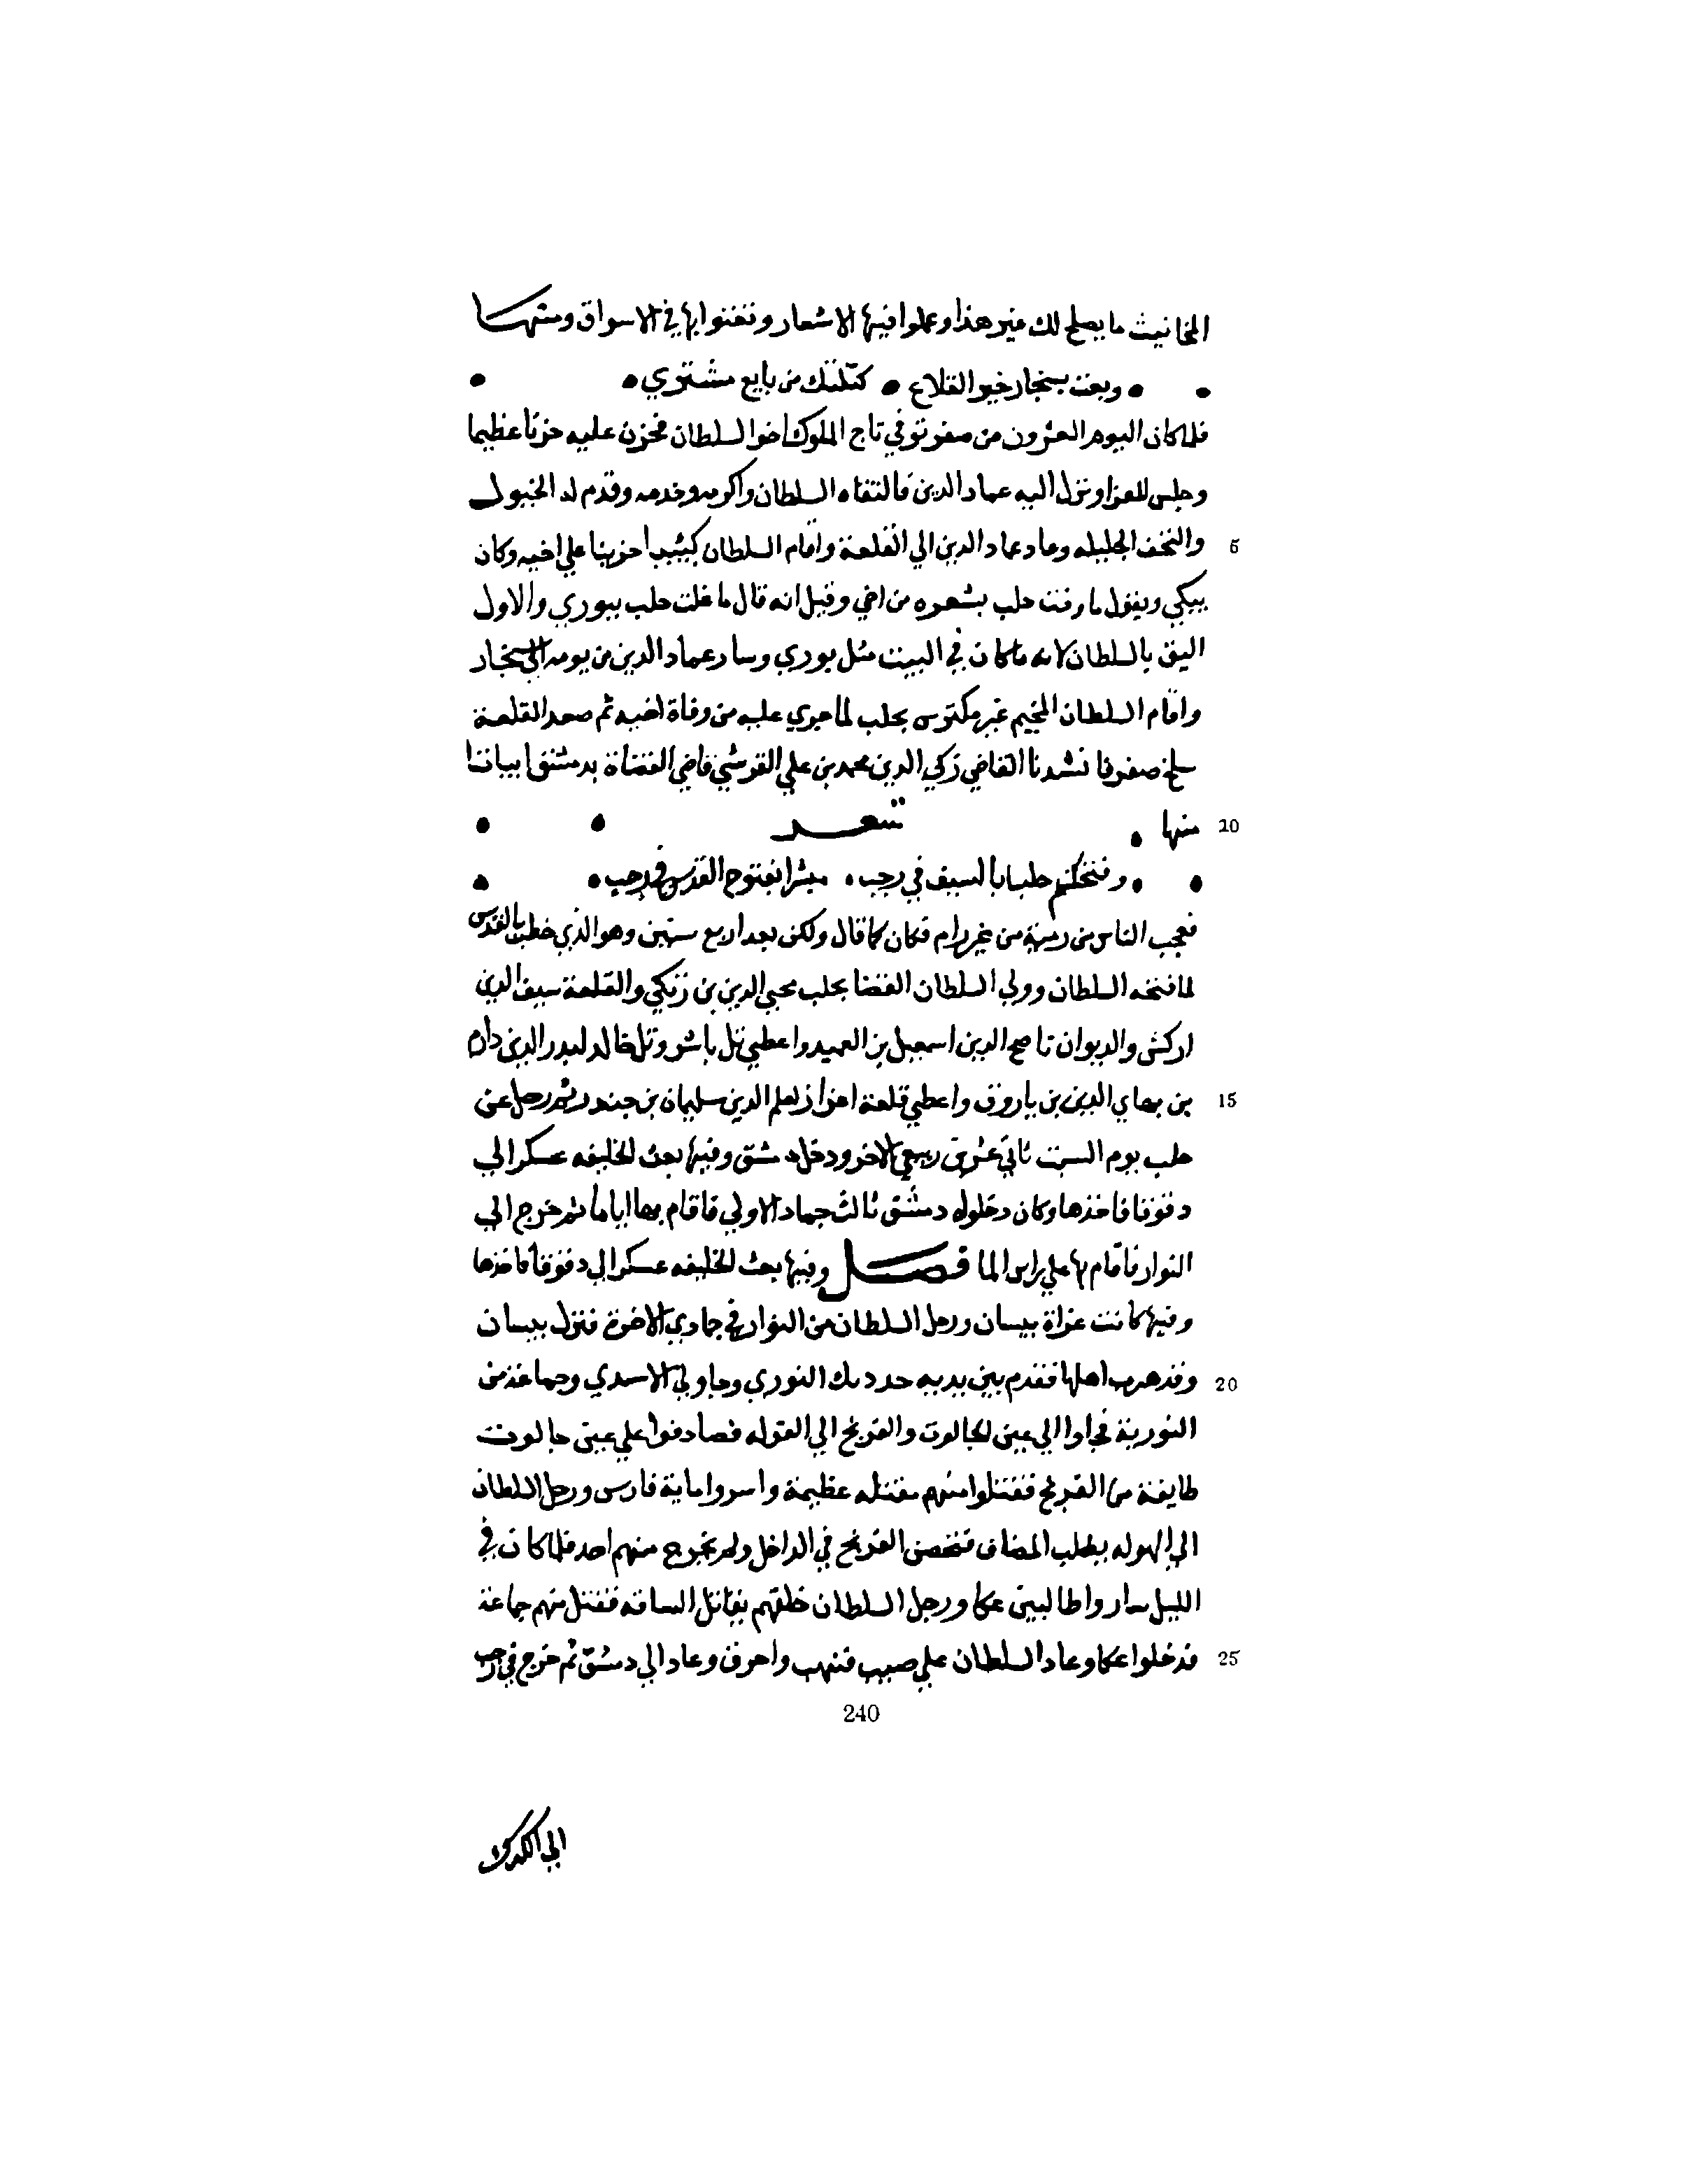 المخانيث ما يصلح لك غير هذا وعملوا فيها الاشعار وتغنوا بها في الاسواق ومنها
وبعت بسنجار خير القلاع • ثكلتك من بايع مشتري
فلما كان اليوم العشرون من صفر توفي تاج الملوك اخو السلطان فحزن عليه حزنا عظيما
وجلس للعزا ونزل اليه عماد الدين فالتقاه السلطان واكرمه وخدمه وقدم له الخيول
5 والتحف الجليله وعاد عماد الدين الي القلعة واقام السلطان كئيبا حزينا علي اخيه وكان
يبكي ويقول ما وفت حلب بشعره من اخي وقيل انه قال ما غلت حلب ببوري والاول
اليق بالسلطان لانه ما كان في البيت مثل بوري وسار عماد الدين من يومه الي سنجار
واقام السلطان المخيم غير مكترس بحلب لما جري عليه من وفاة اخيه ثم صعد القلعة
سلخ صفر فانشدنا القاضي زكي الدين محمد بن علي القرشي قاضي القضاة بدمشق ابياتا
10 منها شعر
وفتحكم حلبا بالسيف في رجب • مبشرا بفتوح القدس في رجب
فعجب الناس من رميه من غير رام فكان كما قال ولكن بعد اربع سنين وهو الذي خطب بالقدس
لما فتحه السلطان وولي السلطان القضا بحلب محيي الدين بن زنكي والقلعة سيف الدين
اركش والديوان ناصح الدين اسمعيل بن العميد واعطي تل باشر وتل خالد لبدر الدين دارم
15 بن بهاي الدين بن ياروق واعطي قلعة اعزاز لعلم الدين سليمان بن جندر ثم رحل عن
حلب يوم السبت ثاني عشرين ربيع الاخر ودخل دمشق وفيها بعث الخليفه عسكرا الي
دقوقا فاخذها وكان دخوله دمشق ثالث جماد الاولي فاقام بها اياما ثم خرج الي
الفوار فاقام بها علي راس الما فصل وفيها بعث الخليفه عسكرا الي دقوقا فاخذها
وفيها كانت غزاة بيسان ورحل السلطان من الفوار في جمادي الاخرة فنزل بيسان
20 وقد هرب اهلها فقدم بين يديه حردىك النوري وجاولي الاسدي وجماعة من
النورية فجاوا الي عين الجالوت والفرنج الي الفوله فصادفوا علي عين جالوت
طايفة من الفرنج فقتلوا منهم مقتله عظيمة واسروا ماية فارس ورحل السلطان
الي الهوله يطلب المصاف فتحصن الفرنج في الداخل ولم يخرج منهم احد فلما كان في
الليل ساروا طالبين عكا ورحل السلطان خلفهم يقاتل الساقه فقتل منهم جماعة
25 فدخلوا عكا وعاد السلطان علي صبيب فنهب واحرق وعاد الي دمشق ثم خرج في رجب
240
الي الكرك